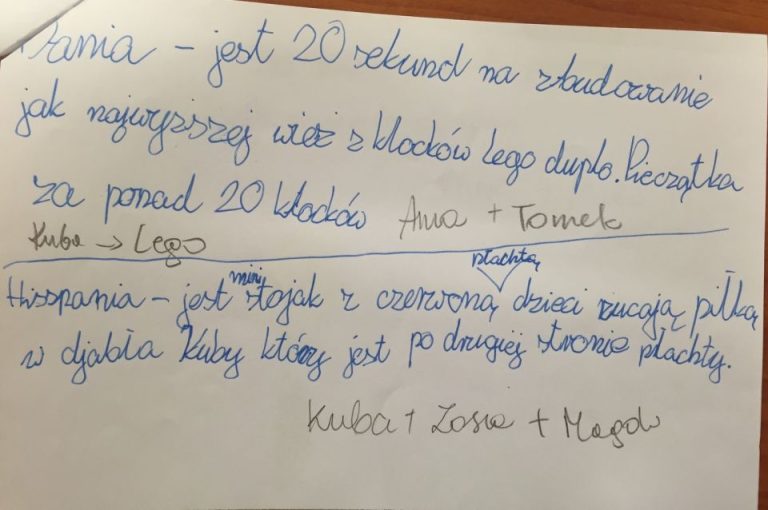 Dania - jest 20 sekund na zbudowanie
jak najwyższej wież z klocków Lego duplo. Pieczątka
za ponad 20 klocków Anna + Tomek
Kuba → Lego
płachtą
Hisspania - jest mini stojak z czerwoną dzieci rzucają piłką
w djabła Kuby który jest po drugiej stronie płachty.
Kuba + Zosia + Magda